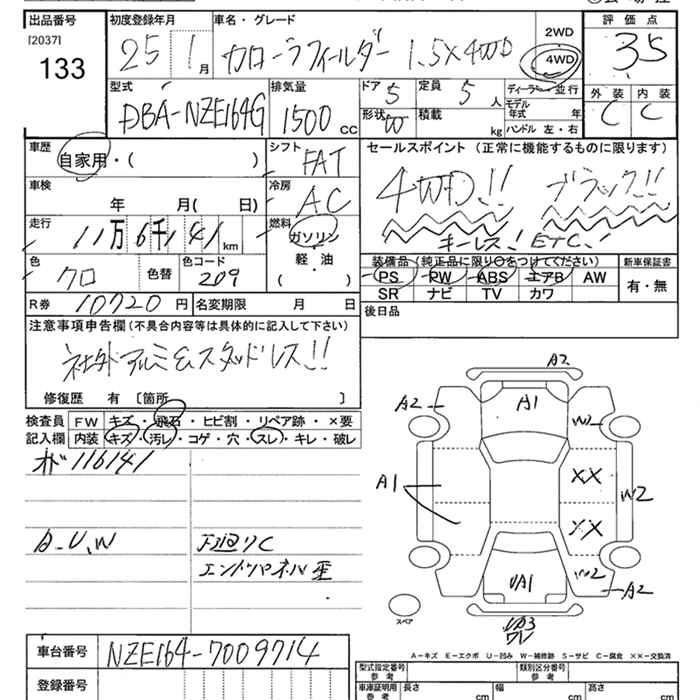 出品番号
[2037]
133
初度登録年月
25 1月
車名・グレード
カローラフィールダー 1.5X4WD
2WD
4WD
評価点
3.5
型式
DBA-NZE164G
排気量
1500cc
ドア
5
定員
5人
形状
W
積載
kg
ディーラー・並行
モデル年式 年
ハンドル 左・右
外装 内装
C C
車歴
自家用・( )
シフト
FAT
車検
年 月( 日)
冷房
AC
走行
11万6千141km
燃料
ガソリン
軽・油
( )
色
クロ
色替
色コード
209
R券
10720円
名変期限 月 日
セールスポイント(正常に機能するものに限ります)
4WD!! ブラック!!
キーレス! ETC!
装備品(純正品に限り○をつけてください)
PS PW ABS エアB AW
SR ナビ TV カワ
新車保証書
有・無
後日品
注意事項申告欄(不具合内容等は具体的に記入して下さい)
社外アルミ&スタッドレス!!
修復歴 有〔箇所 〕
検査員記入欄
FW キズ・飛石・ヒビ割・リペア跡・×要
内装 キズ・汚レ・コゲ・穴・スレ・キレ・破レ
オド116141
A-U.W
下廻りC
エンドパネル歪
A2
A1
A2
W2
A1
XX
W2
XX
W2
A2
UA1
UA3
W
スペア
A-キズ E-エクボ U-凹み W-補修跡 S-サビ C-腐食 ××-交換済
車台番号
NZE164-7009714
登録番号
型式指定番号 参考
類別区分番号 参考
車庫証明用 参考
長さ cm
幅 cm
高さ cm